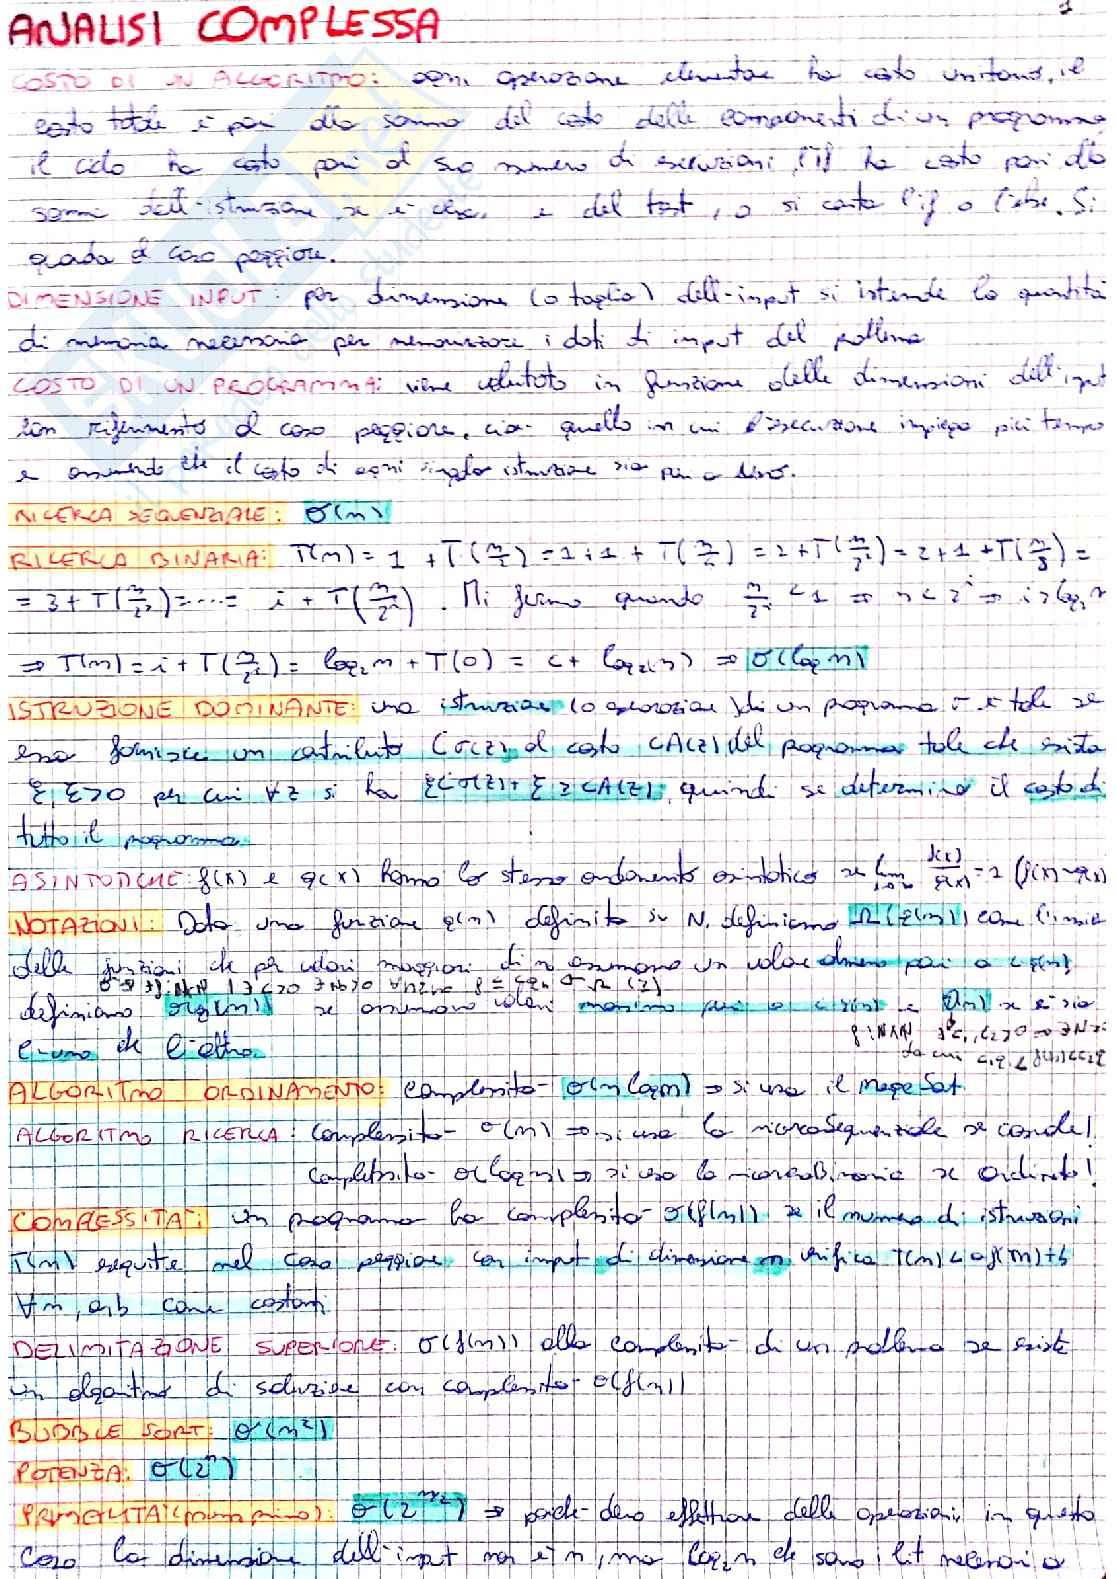 1
ANALISI COMPLESSA
COSTO DI UN ALGORITMO: ogni operazione elementare ha costo unitario, il
costo totale è pari alla somma del costo delle componenti di un programma
il ciclo ha costo pari al suo numero di esecuzioni, l'if ha costo pari alla
somma dell'istruzione, se è else, e del test, o si conta l'if o l'else. Si
guarda il caso peggiore.
DIMENSIONE INPUT: per dimensione (o taglia) dell'input si intende la quantità
di memoria necessaria per memorizzare i dati di input del problema
COSTO DI UN PROGRAMMA: viene valutato in funzione delle dimensioni dell'input
con riferimento al caso peggiore, cioè quello in cui l'esecuzione impiega più tempo
e assumendo che il costo di ogni singola istruzione sia pari a
RICERCA SEQUENZIALE: O(n)
RICERCA BINARIA: T(n) = 1 + T(n/2) = 1+1 + T(n/4) = 2+T(n/2²) = 2+1+T(n/8) =
= 3+T(n/2³) = .... = i + T(n/2^i). Mi fermo quando n/2^i < 1 ⇒ n < 2^i ⇒ i > log₂ n
⇒ T(n) = i + T(n/2^i) = log₂ n + T(0) = c + log₂(n) ⇒ O(log n)
ISTRUZIONE DOMINANTE: una istruzione (o operazione) di un programma è tale se
essa fornisce un contributo Cσ(z) al costo CA(z) del programma tale che esista
ξ, ξ>0 per cui ∀z si ha ξCσ(z)+ξ ≥ CA(z), quindi se determina il costo di
tutto il programma.
ASINTOTICHE: f(x) e g(x) hanno lo stesso andamento asintotico se lim f(x)/g(x) = 1 (f(x)~g(x))
NOTAZIONI: Data una funzione g(n) definita su N, definiamo Ω(g(n)) come l'insieme
delle funzioni che per valori maggiori di n assumono un valore almeno pari a cg(n)
definiamo O(g(n)) se assumono valori massimo pari a c g(n) e Θ(n) se è sia
l'uno che l'altro.
ALGORITMO ORDINAMENTO: complessità O(n log n) ⇒ si usa il MergeSort
ALGORITMO RICERCA: complessità O(n) ⇒ si usa la ricercaSequenziale se
complessità O(log n) ⇒ si usa la ricercaBinaria se ordinato!
COMPLESSITA': un programma ha complessità O(f(n)) se il numero di istruzioni
T(n) eseguite nel caso peggiore con input di dimensione n, verifica T(n) < a f(n)+b
∀n, a,b come costanti.
DELIMITAZIONE SUPERIORE: O(f(n)) alla complessità di un problema se esiste
un algoritmo di soluzione con complessità O(f(n))
BUBBLE SORT: O(n²)
POTENZA: O(2^n)
PRIMALITA' (numero primo): O(2^n/2) ⇒ perché devo effettuare delle operazioni, in questo
caso la dimensione dell'input non è n, ma log₂n che sono i bit necessari a